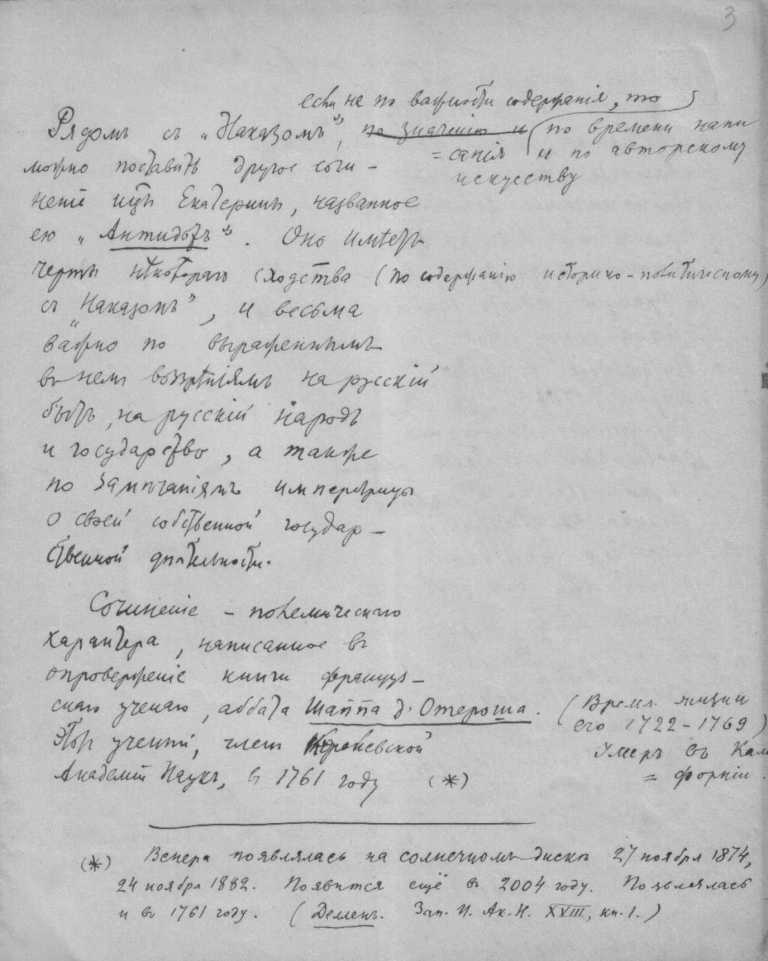 3
если не по важности содержанія, то
Рядомъ съ „Наказомъ", по значенію и по времени напи
= санія и по авторскому
искусству
можно поставить другое сочи-
неніе имп. Екатерины, названное
ею „Антидотъ". Оно имѣетъ
черты нѣкотораго сходства (по содержанію историко-политическому)
съ „Наказомъ", и весьма
важно по выраженнымъ
въ немъ воззрѣніямъ на русскій
бытъ, на русскій народъ
и государство, а также
по замѣчаніямъ императрицы
о своей собственной государ-
ственной дѣятельности.
Сочиненіе – полемическаго
характера, написанное въ
опроверженіе книги француз-
скаго ученаго, аббата Шаппа д'Отероша. (Время жизни
его 1722-1769)
Этотъ ученый, членъ Королевской
Умеръ въ Кали
= форніи.
Академіи Наукъ, въ 1761 году (*)
(*) Венера появлялась на солнечномъ дискѣ 27 ноября 1874,
24 ноября 1882. Появится ещё въ 2004 году. Появлялась
и въ 1761 году. (Деллен. Зап. И. Ак. Н. XVIII, кн. 1.)